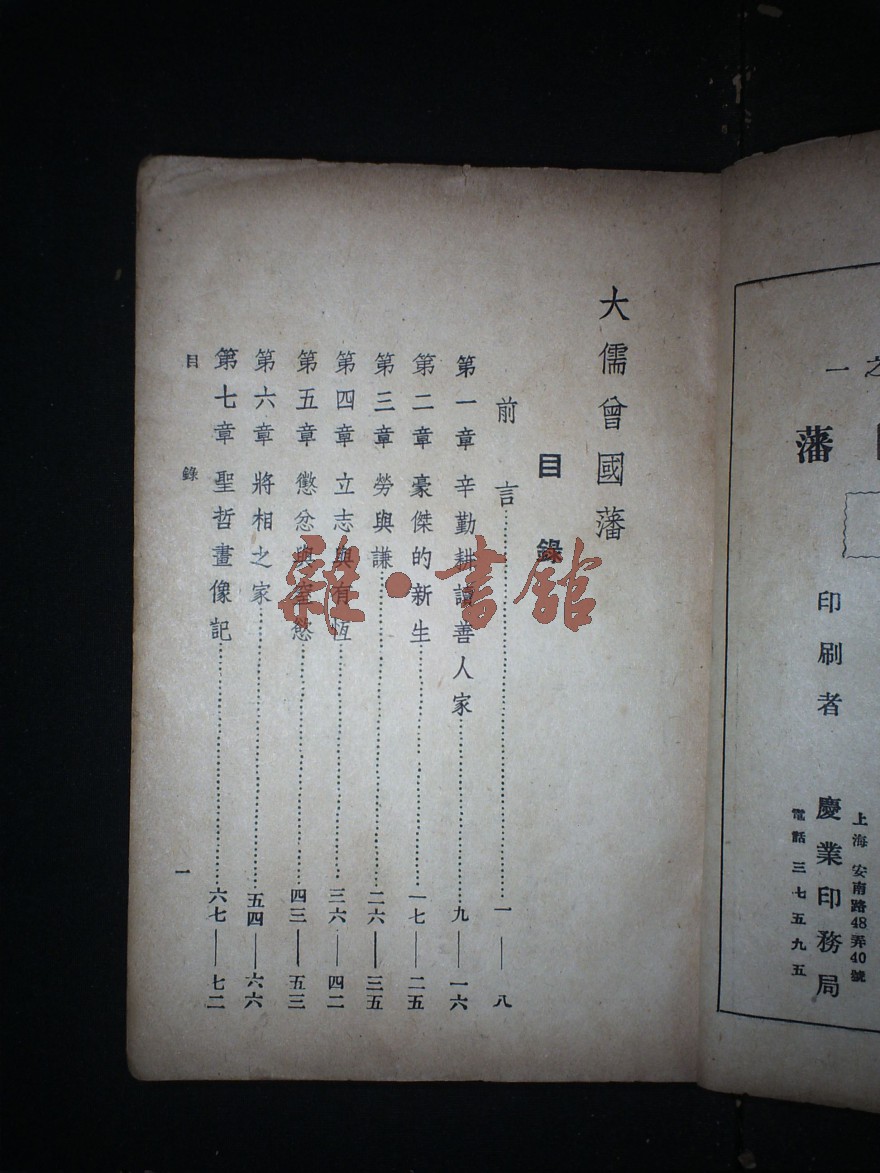 之一
藩
印刷者 慶業印務局
上海安南路48弄40號
電話三七五九五
大儒曾國藩
目錄
前言…一——八
第一章 辛勤耕讀善人家…九——一六
第二章 豪傑的新生…一七——二五
第三章 勞與謙…二六——三五
第四章 立志與有恆…三六——四二
第五章 懲忿與窒慾…四三——五三
第六章 將相之家…五四——六六
第七章 聖哲畫像記…六七——七二
目錄 一
雜·書館